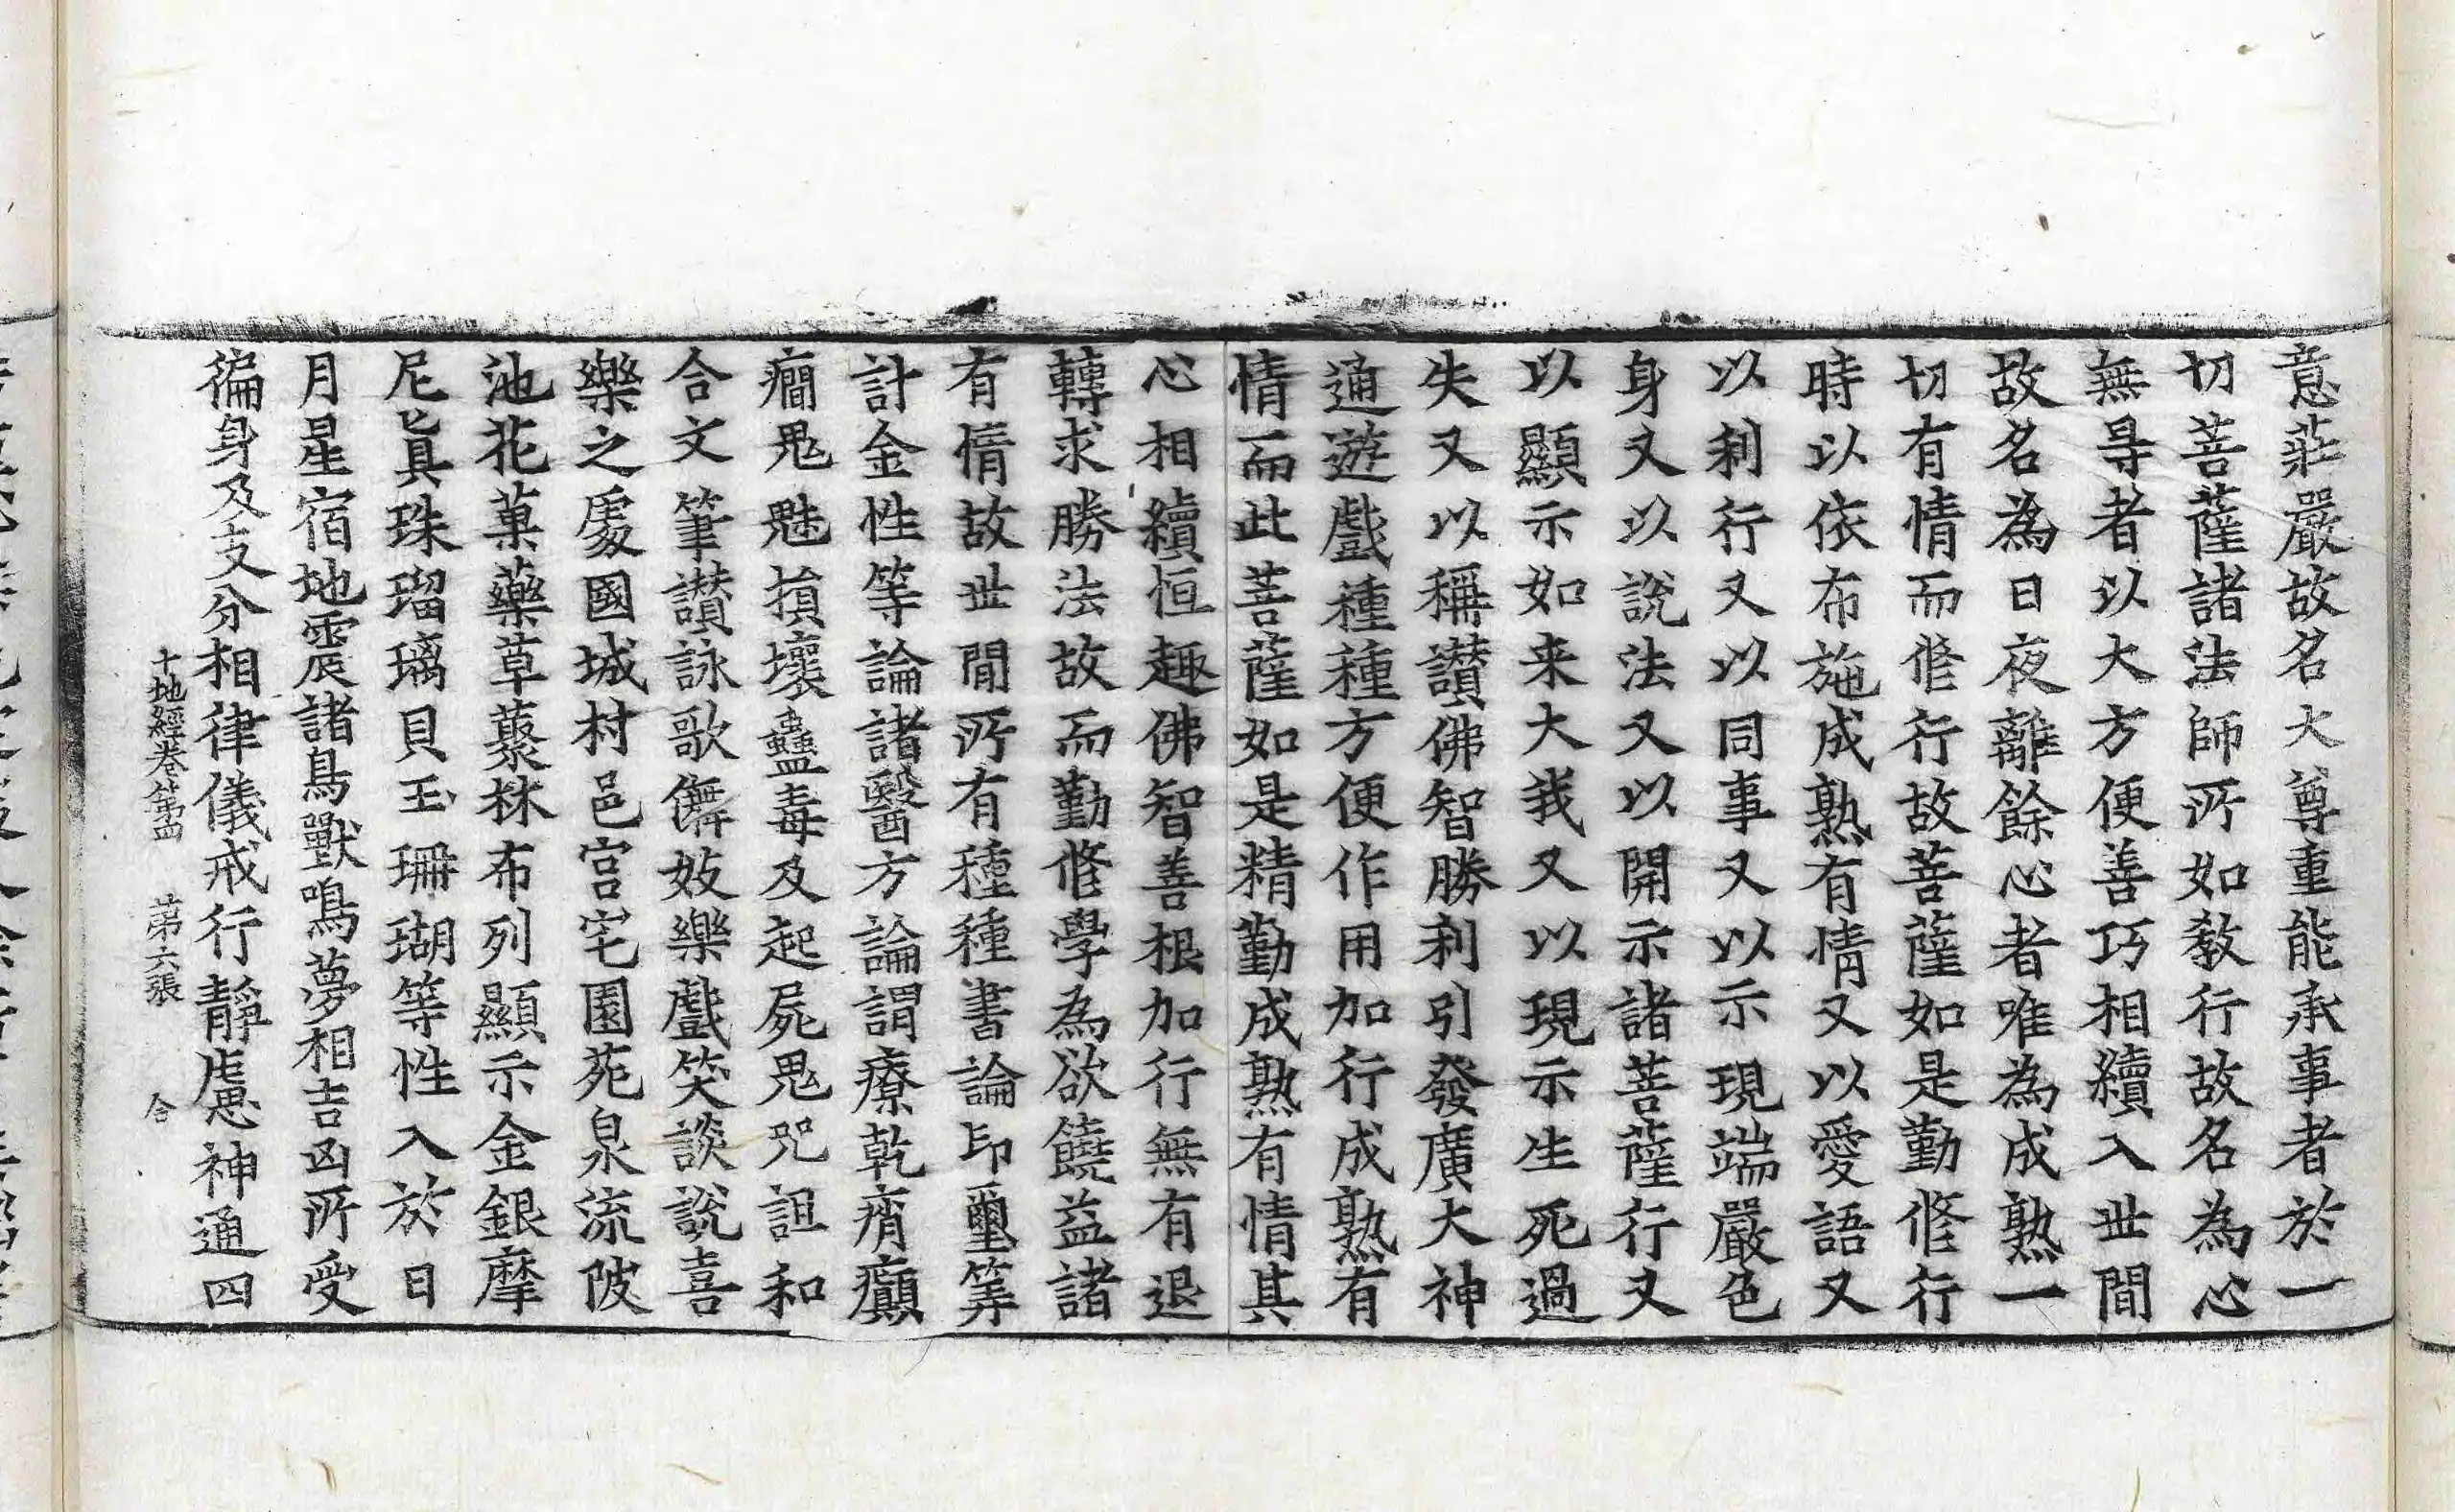 意莊嚴故名大尊重能承事者於一
切菩薩諸法師所如教行故名為心
無㝵者以大方便善巧相續入世間
故名為日夜離餘心者唯為成熟一
切有情而修行故菩薩如是勤修行
時以依布施成熟有情又以愛語又
以利行又以同事又以示現端嚴色
身又以說法又以開示諸菩薩行又
以顯示如来大我又以現示生死過
失又以稱讚佛智勝利引發廣大神
通遊戲種種方便作用加行成熟有
情而此菩薩如是精勤成熟有情其
心相續恒趣佛智善根加行無有退
轉求勝法故而勤修學為欲饒益諸
有情故世間所有種種書論印璽筭
計金性等論諸醫方論謂療乾痟癲
癎鬼魅損壞蠱毒及起屍鬼咒詛和
合文筆讃詠歌儛妓樂戲笑談說喜
樂之處國城村邑宮宅園苑泉流陂
池花菓藥草藂林布列顯示金銀摩
尼眞珠瑠璃貝玉珊瑚等性入於日
月星宿地震諸鳥獸鳴夢相吉凶所受
徧身及支分相律儀戒行靜慮神通四
十地經卷第四 第六張 合